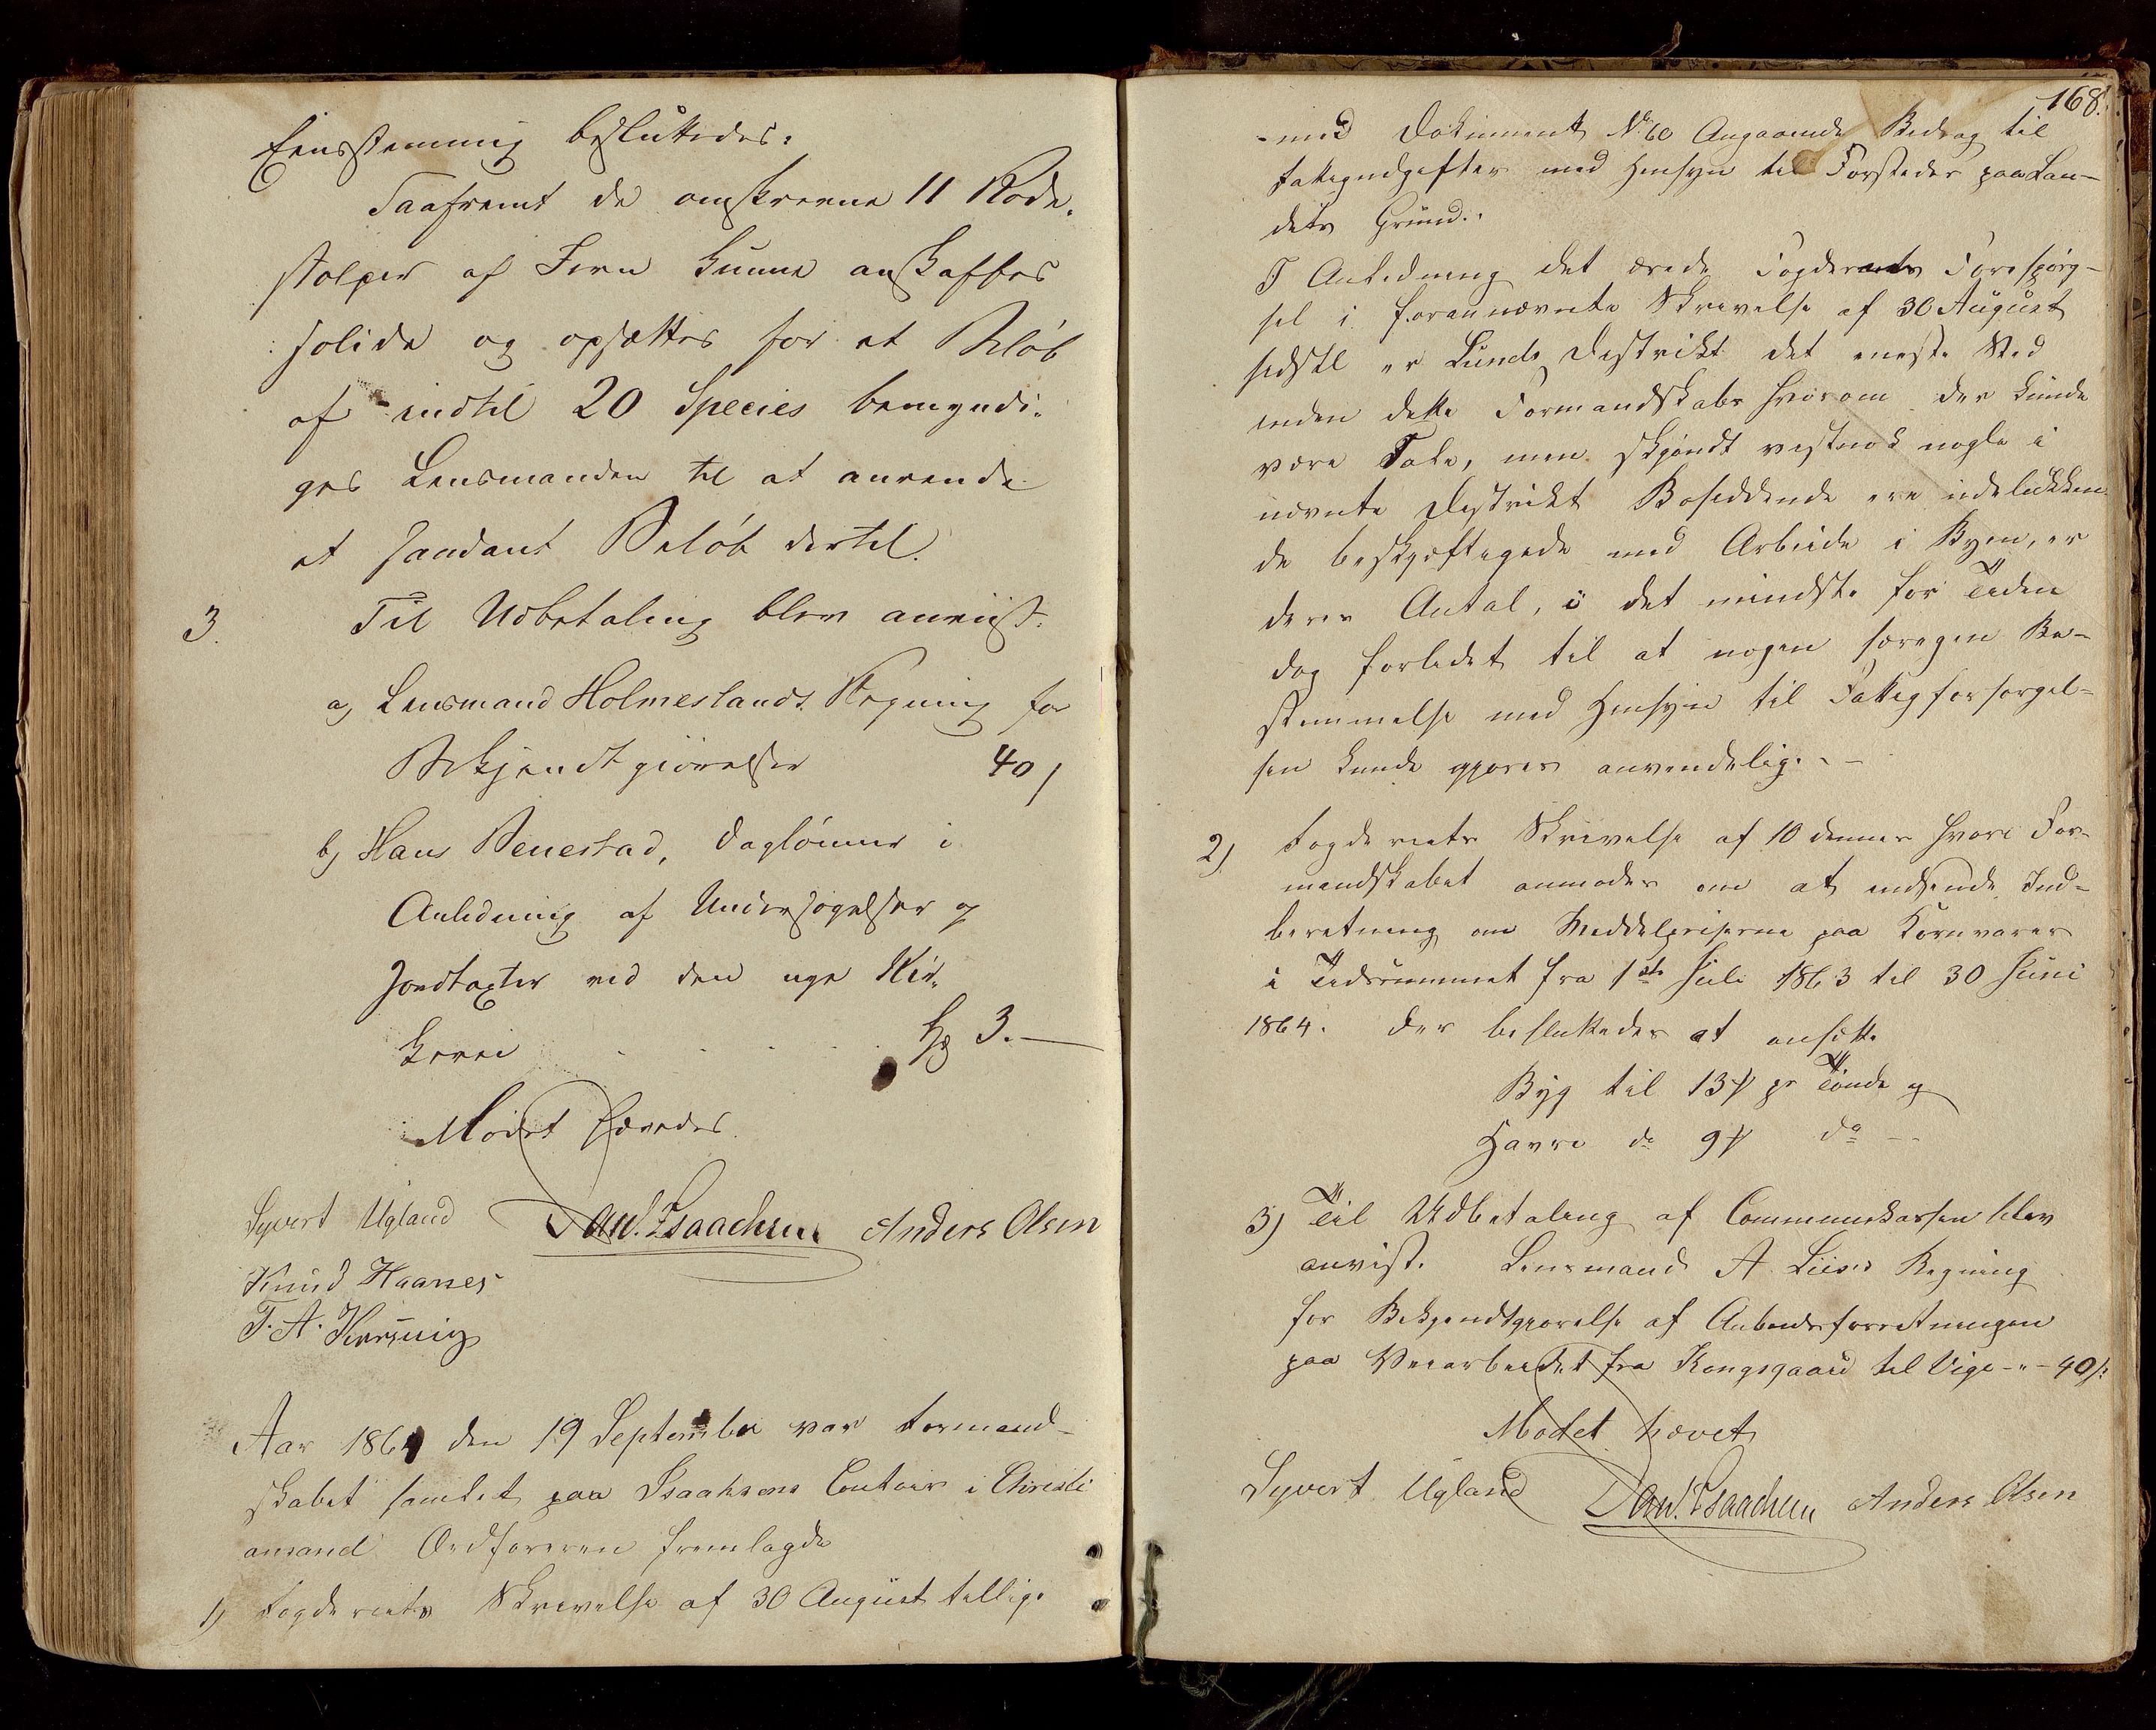 Eensstemmig besluttedes:
Saafremt de omskrevne 11 Rode-
stolper af Jern kunne anskaffes
solide og opsættes for et Beløb
af indtil 20 Species bemyndi-
ges Lensmanden til at anvende
et saadant Beløb dertil.
3. Til Udbetaling blev anviist:
a, Lensmand Holmeslands Regning for
Bekjendtgiørelser 40 /
b, Hans Benestad, Daglønner i
Anledning af Undersøgelser og
Jordtaxter ved den nye Kir-
kevei . . . . . 3. —
Mødet hævedes.
Syvert Ugland Dan. Isaachsen Anders Olsen
Knud Haanes
T. A.
Aar 1864 den 19 September var Formand-
skabet samlet paa Isaaksens Contoir i Christi
ansand Ordføreren fremlagde
1) Fogderiets Skrivelse af 30 August tillige
168.
-med Dokument No 60 Angaaende Bidrag til
Fattigudgifter med Hensyn til Forsteder paa Lan-
dets Grund.
I Anledning det ærede Fogderiets Forespørg-
sel i forannævnte Skrivelse af 30 August
sidstl er Lunds Distrikt det eneste Sted
inden dette Formandskabs hvorom der kunde
være Tale, men skjøndt vistnok nogle i
nævnte Distrikt Bosiddende ere udelukken-
de beskjæftigede med Arbeide i Byen, er
deres Antal, i det mindste for Tiden
dog forlidet til at nogen særegen Be-
stemmelse med Hensyn til Fattigforsørgel-
sen kunde gjøres anvendelig. -
2) Fogderiets Skrivelse af 10 dennes hvori For-
mandskabet anmodes om at indsende Ind-
beretning om Middelpriserne paa Kornvarer
i Tidsrummet fra 1ste Juli 1863 til 30 Juni
1864. Der besluttedes at ansætte
Byg til 13 pr Tønde og
Havre do 9 do --
3) Til Udbetaling af Communekassen blev
anvist. Lensmand A Regning
for Bekjendtgjørelse af Anbudsforretningen
paa Veiarbeidet fra Kongsgaard til Vige - " - 40 /:
Mødet hævet
Syvert Ugland Dan. Isaachsen Anders Olsen